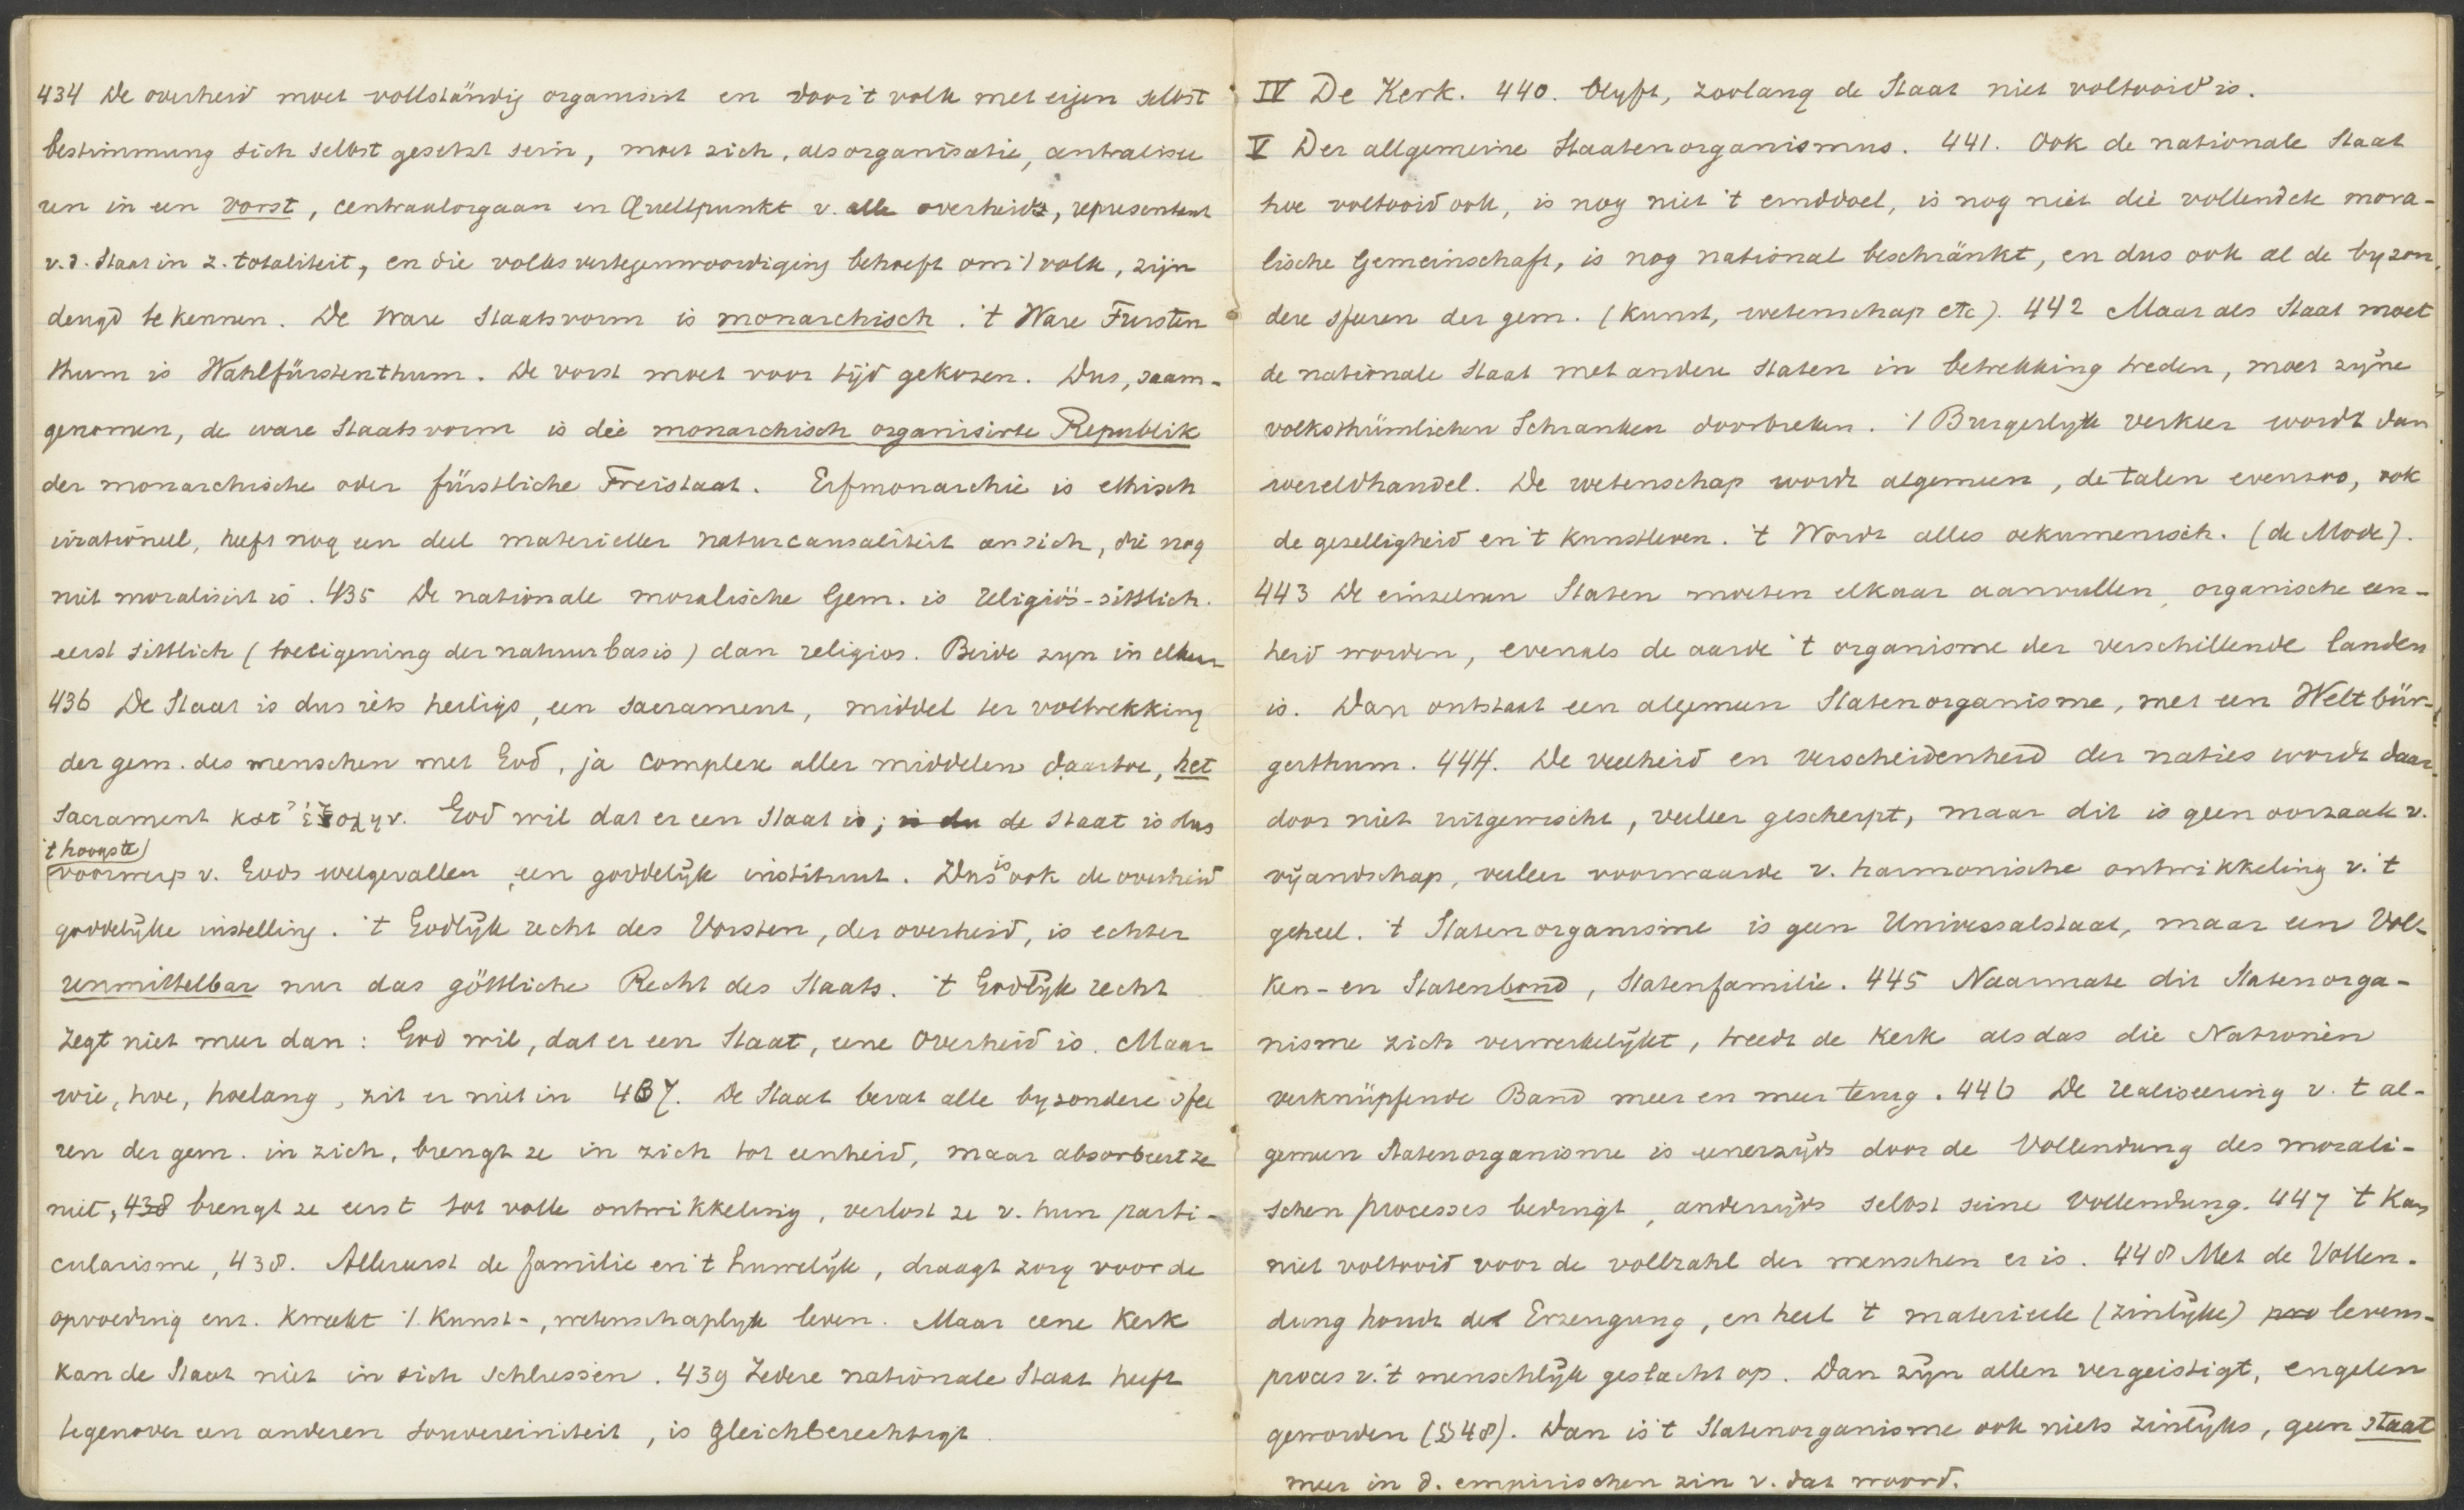 434 De overheid moet vollständig organisirt en door 't volk met eigen selbst
bestimmung sich selbst gesetzt sein, moet zich, als organisatie, centralisee
ren in een vorst, centraalorgaan en Quellpunkt v. alle overheid, representant
v.d. Staat in z. totaliteit, en die volksvertegenwoordiging behoeft om 't volk, zijn
deugd te kennen. De ware Staatsvorm is monarchisch. 't Ware Fursten
thum is Wahlfürstenthum. De vorst moet voor tijd gekozen. Dus, saam-
genomen, de ware Staatsvorm is die monarchisch organisirte Republik
der monarchische oder fürstliche Freistaat. Erfmonarchie is ethisch
irrationeel, heeft nog een deel materieller naturcausaliteit an sich, die nog
niet moralisirt is. 435 De nationale moralische Gem. is religiös-sittlich.
eerst sittlich (toeëigening der natuurbasis) dan religios. Beide zyn in elkaar
436 De Staat is dus iets heiligs, een sacrament, middel ter voltrekking
der gem. des menschen met God, ja complex aller middelen daartoe, het
Sacrament κατ' ἐξοχην. God wil dat er een Staat is; is du de Staat is dus
't hoogste
voorwerp v. Gods welgevallen, een goddelijk instituut. Dus is ook de overheid
goddelijke instelling. 't Godlijk recht des Vorsten, der overheid, is echter
unmittelbar nur das göttliche Recht des Staats. 't Godlijk recht
zegt niet meer dan: God wil, dat er een Staat, eene Overheid is. Maar
wie, hoe, hoelang, zit er niet in 437. De Staat bevat alle byzondere sfee
ren der gem. in zich, brengt ze in zich tot eenheid, maar absorbeert ze
niet, 438 brengt ze eerst tot volle ontwikkeling, verlost ze v. hun parti-
cularisme, 438. Allereerst de familie en 't huwelijk, draagt zorg voor de
opvoeding enz. Kweekt 't Kunst-, wetenschaplyk leven. Maar eene Kerk
kan de Staat niet in sich schliessen. 439 Iedere nationale Staat heeft
tegenover een anderen souvereiniteit, is gleichberechtigt.
IV De Kerk. 440. blyft, zoolang de Staat niet voltooid is.
V Der allgemeine Staatenorganismus. 441. Ook de nationale Staat
hoe voltooid ook, is nog niet 't einddoel, is nog niet die vollendete mora-
lische Gemeinschaft, is nog national beschränkt, en dus ook al de byzon
dere sferen der gem. (Kunst, wetenschap etc). 442 Maar als Staat moet
de nationale Staat met andere Staten in betrekking treden, moet zijne
volksthümlichen Schranken doorbreken. 't Burgerlyk verkeer wordt dan
wereldhandel. De wetenschap wordt algemeen, de talen evenzoo, ook
de gezelligheid en 't kunstleven. 't Wordt alles oekumenisch. (de Mode).
443 De einzelnen Staten moeten elkaar aanvullen, organische een-
heid worden, evenals de aarde 't organisme der verschillende landen
is. Dan ontstaat een algemeen Statenorganisme, met een Weltbür-
gerthum. 444. De veelheid en verscheidenheid der naties wordt daar-
door niet uitgewischt, veeleer gescherpt, maar dit is geen oorzaak v.
vijandschap, veeleer voorwaarde v. harmonische ontwikkeling v. 't
geheel. 't Statenorganisme is geen Universalstaat, maar een Vol-
ken- en Statenbond, Statenfamilie. 445 Naarmate dit Statenorga-
nisme zich verwerkelijkt, treedt de Kerk als das die Nationen
verknüpfende Band meer en meer terug. 446 De realiseering v. 't al-
gemeen Statenorganisme is eenerzijds door de Vollendung des morali-
schen processes bedingt, anderzijds selbst seine Vollendung. 447 't Kan
niet voltooid voor de vollzahl der menschen er is. 448 Met de Vollen-
dung houdt de Erzeugung, en heel 't materieele (zinlijke) pro levens-
proces v. 't menschlijk geslacht op. Dan zijn allen vergeistigt, engelen
geworden (§48). Dan is 't Statenorganisme ook niets zinlijks, geen Staat
meer in d. empirischen zin v. dat woord.